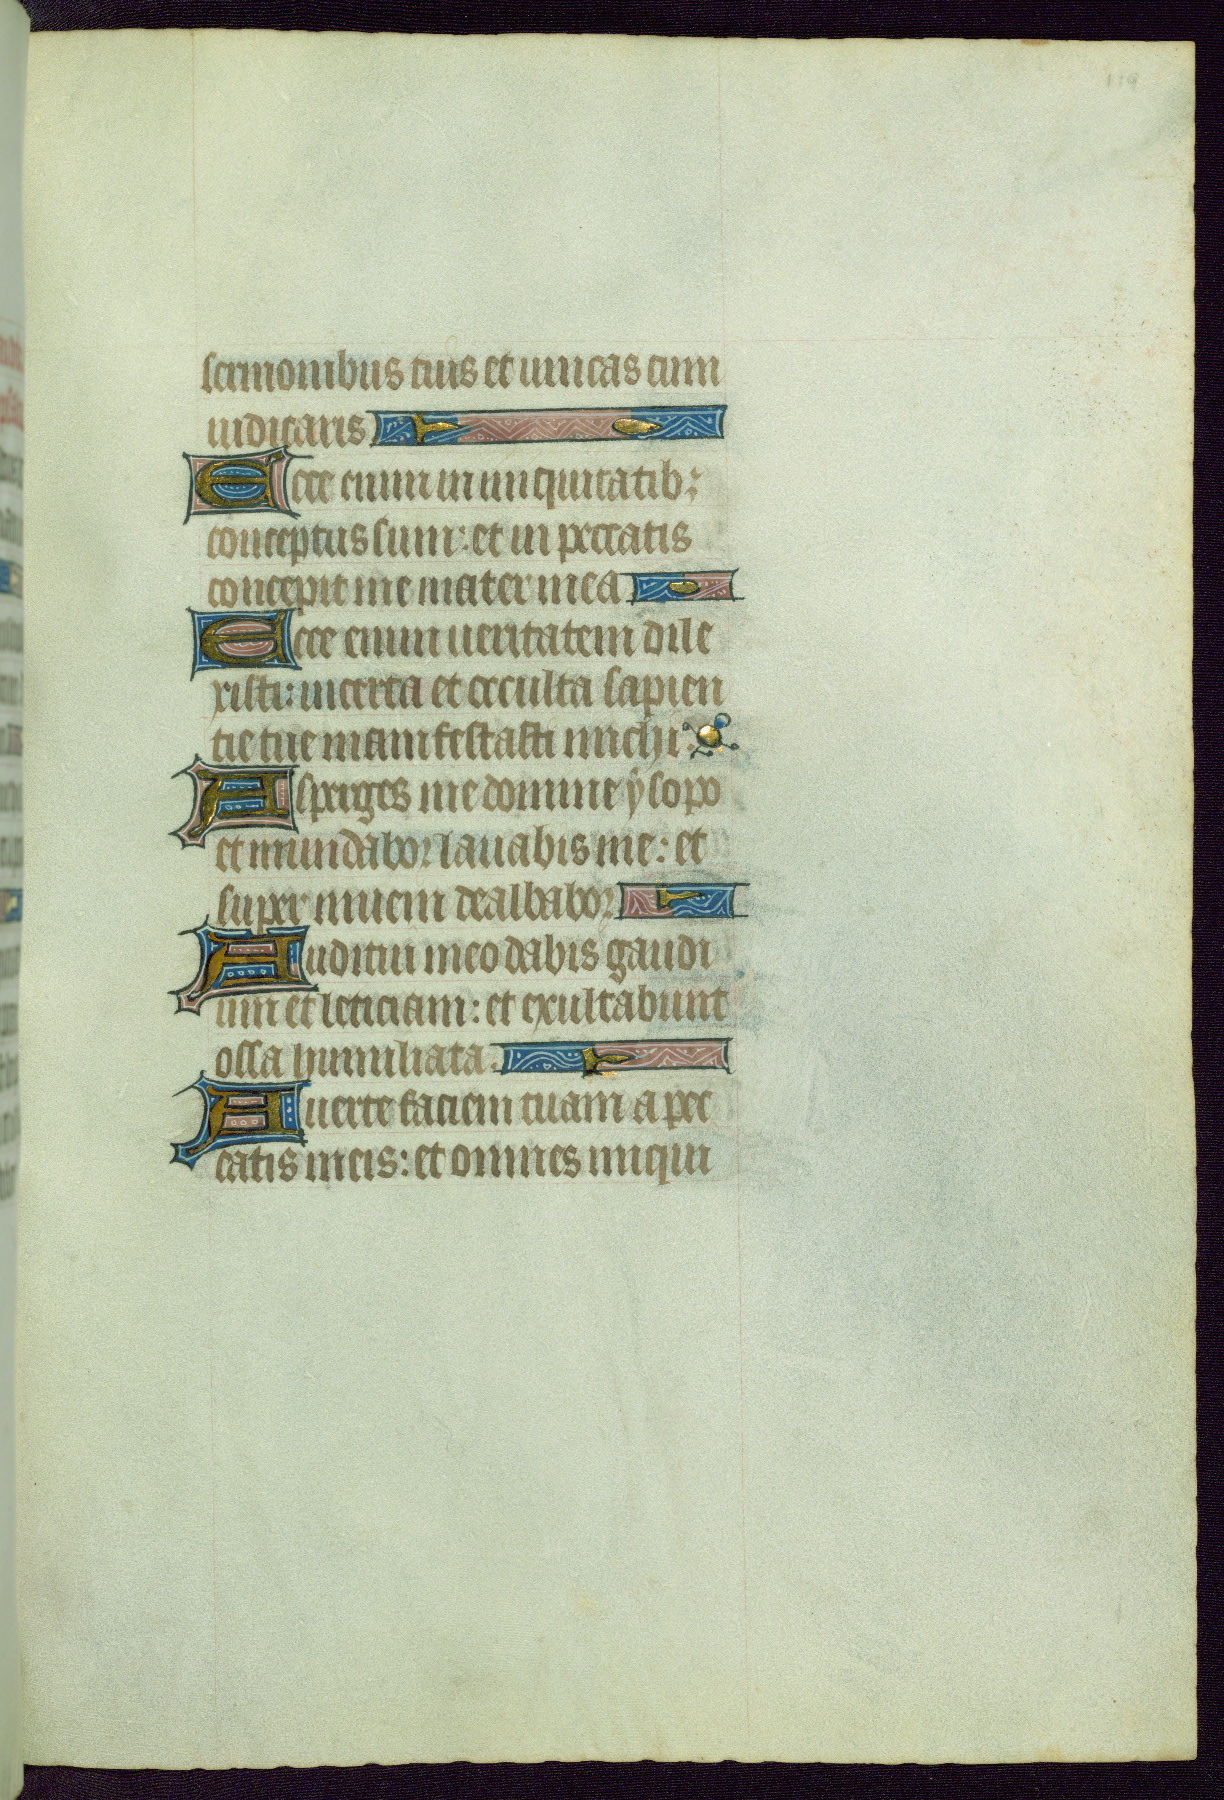 sermonibus tuis et vincas cum
iudicaris
Ecce enim in iniquitatib;
conceptus sum: et in peccatis
concepit me mater mea
Ecce enim ueritatem dile
xisti: incerta et occulta sapien
tie tue manifestasti michi.
Asperges me domine ysopo
et mundabor lauabis me: et
super niuem dealbabor.
Auditui meo dabis gaudi
um et leticiam: et exultabunt
ossa humiliata.
Auerte faciem tuam a pec
catis meis: et omnes iniqui